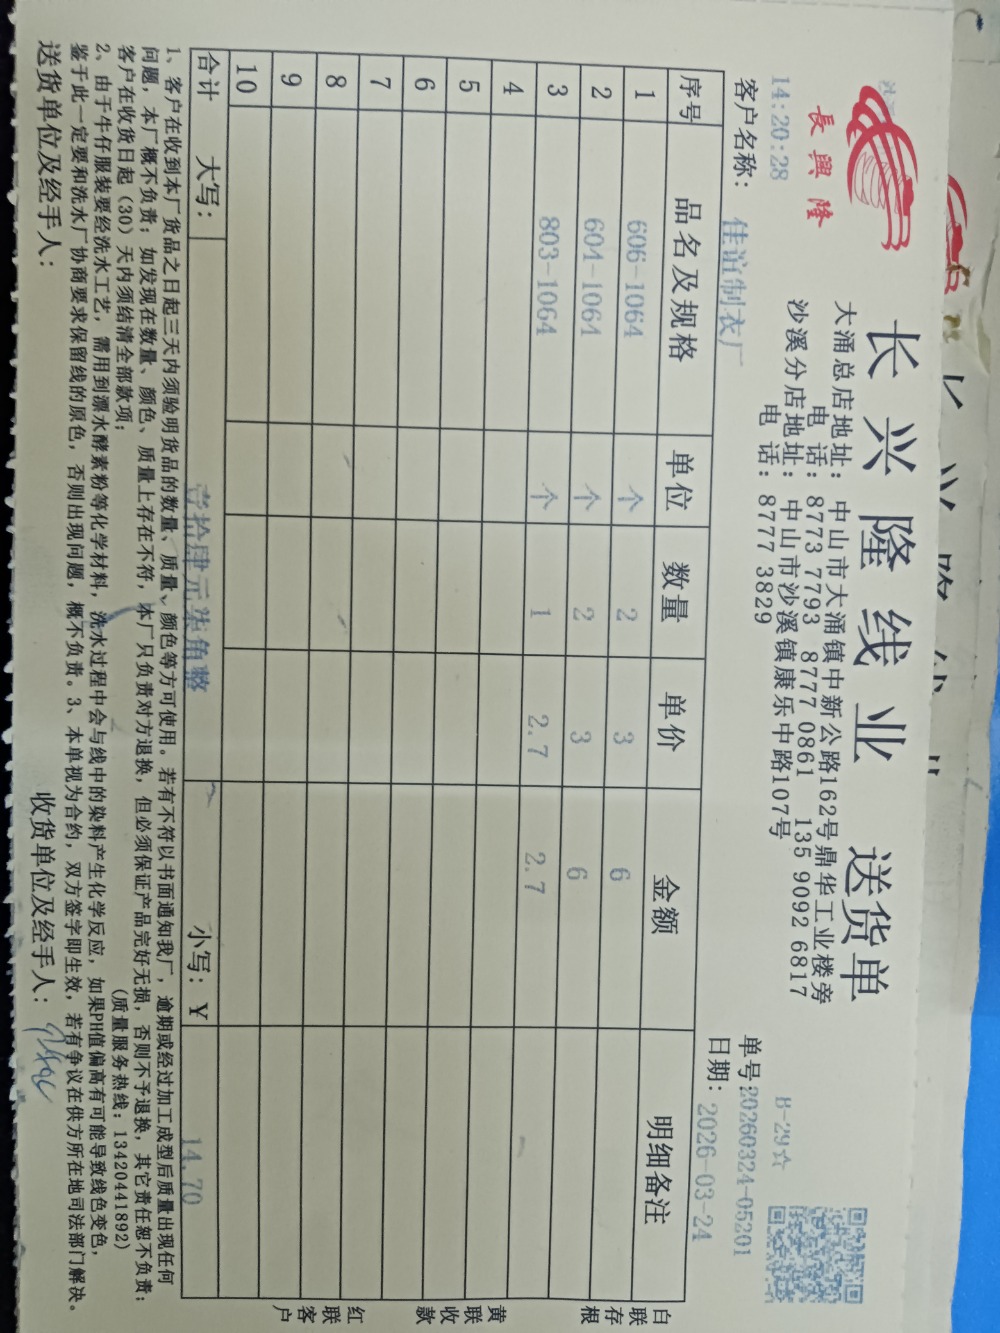 長興隆
长兴隆线业 送货单
大涌总店地址：中山市大涌镇中新公路162号鼎华工业楼旁
电 话：8773 7793 8777 0861 135 9092 6817
沙溪分店地址：中山市沙溪镇康乐中路107号
电 话：8777 3829
14:20:28
B-29☆
单号20260324-05201
客户名称：佳谊制衣厂
日期：2026-03-24
序号 品名及规格 单位 数量 单价 金额 明细备注
1 606-1064 个 2 3 6
2 604-1064 个 2 3 6
3 803-1064 个 1 2.7 2.7
4
5
6
7
8
9
10
合计 大写：壹拾肆元柒角整 小写：￥ 14.70
白联存根
黄联收款
红联客户
1、客户在收到本厂货品之日起三天内须验明货品的数量、质量、颜色等方可使用。若有不符以书面通知我厂，逾期或经过加工成型后质量出现任何
问题，本厂概不负责；如发现在数量、颜色、质量上存在不符，本厂只负责对方退换，但必须保证产品完好无损，否则不予退换，其它责任恕不负责；
客户在收货日起（30）天内须结清全部款项； （质量服务热线：13420441892）
2、由于牛仔服装要经洗水工艺，需用到漂水酵素粉等化学材料，洗水过程中会与线中的染料产生化学反应，如果PH值偏高有可能导致线色变色，
鉴于此一定要和洗水厂协商要求保留线的原色，否则出现问题，概不负责。3、本单视为合约，双方签字即生效，若有争议在供方所在地司法部门解决。
送货单位及经手人： 收货单位及经手人：